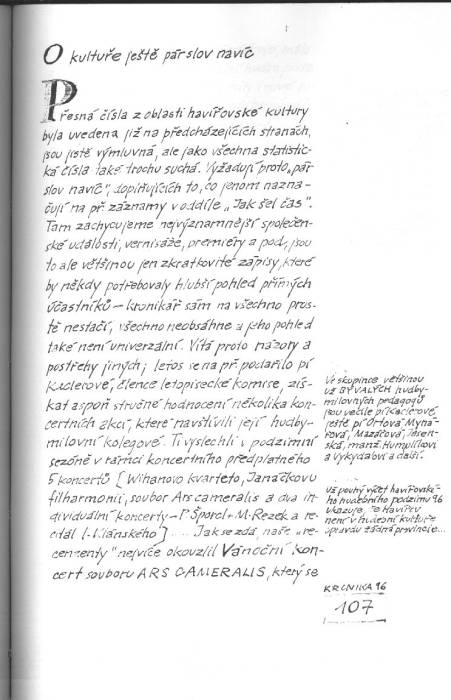 O kultuře ještě pár slov navíc
Přesná čísla z oblasti havířovské kultury
byla uvedena již na předcházejících stranách,
jsou jistě výmluvná, ale jako všechna statistic-
ká čísla také trochu suchá. Vyžadují proto „pár
slov navíc“, doplňujících to, co jenom nazna-
čují na př. záznamy v oddíle „Jak šel čas“.
Tam zachycujeme nejvýznamnější společen-
ské události, vernisáže, premiéry a pod., jsou
to ale většinou jen zkratkovité zápisy, které
by někdy potřebovaly hlubší pohled přímých
účastníků – kronikář sám na všechno pros-
tě nestačí, všechno neobsáhne a jeho pohled
také není univerzální. Vítá proto názory a
postřehy jiných; letos se na př. podařilo pí
Kaclerové, člence letopisecké komise, zís-
kat aspoň stručné hodnocení několika kon-
certních akcí, které navštívili její hudby-
milovní kolegové. Ti vyslechli v podzimní
sezóně v rámci koncertního předplatného
5 koncertů [Wihanovo kvarteto, Janáčkovu
filharmonii, soubor Ars cameralis a dva in-
dividuální koncerty – P. Šporcl + M. Rezek a re-
citál I. Klánského] ... Jak se zdá, naše „re-
cenzenty“ nejvíce okouzlil Vánoční kon-
cert souboru ARS CAMERALIS, který se
Ve skupince většinou
už BÝVALÝCH hudby-
milovných pedagogů
jsou vedle pí Kaclerové
ještě pí Ortová, Myna-
řová, Mazáčová,
ská, manž. Humplíkovi
a Vykydalovi a další.
Už pouhý výčet havířovské-
ho hudebního podzimu 96
ukazuje, že Havířov
není v hudební kultuře
opravdu žádná provincie...
KRONIKA 96
107